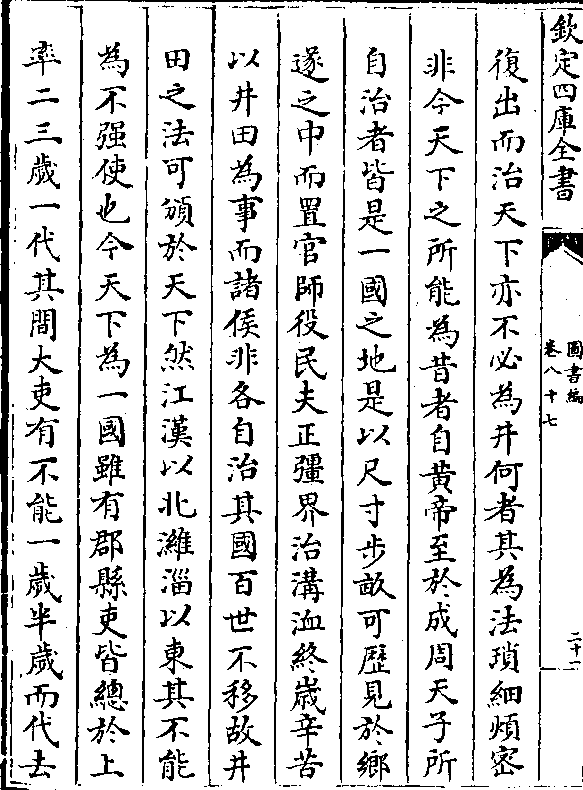 欽定四庫全書
圖書編
卷八十七
二十一
復出而治天下亦不必為井何者其為法瑣細煩宻
非今天下之所能為昔者自黄帝至於成周天子所
自治者皆是一國之地是以尺寸步畝可歴見於鄉
遂之中而置官師役民夫正疆界治溝洫終歳辛苦
以井田為事而諸侯非各自治其國百世不移故井
田之法可頒於天下然江漢以北濰淄以東其不能
為不强使也今天下為一國雖有郡縣吏皆總於上
率二三歲一代其間大吏有不能一歲半歲而代去